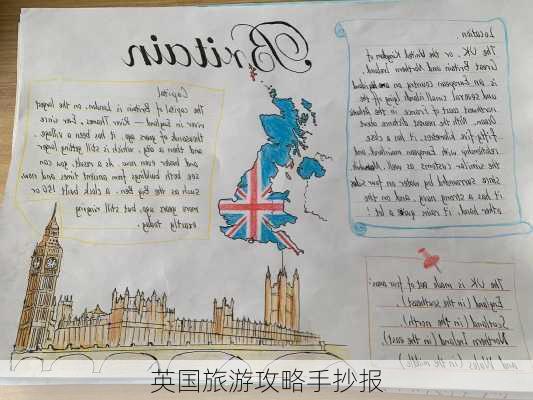 Britain
Capital
The capital of Britain is London, on the longest
river in England — River Thames. Ever since
thousands of years ago, it has been a village,
and then a city, which is still getting larger
and busier even now. As a result, you can
see both buildings from ancient times and now
such as the Big Ben, a clock built 150 or
more years ago, but still ringing
exactly today.
Location.
The UK, or the United Kingdom of
Great Britain and Northern Ireland
is an European country on
and several small islands lying off the
northwest coast of France in the
Ocean. With the nearest distance about
fifty-five kilometres, it has a close
relationship with European mainland, and
the similar customs as well.
since surrounded by water on four sides
it has a strong navy, and on the
other hand, it rains quite a lot
The UK is made out of four areas:
England (in the southeast),
Scotland (in the north),
Northern Ireland (in the east),
and Wales (in the middle)
英国旅游攻略手抄报